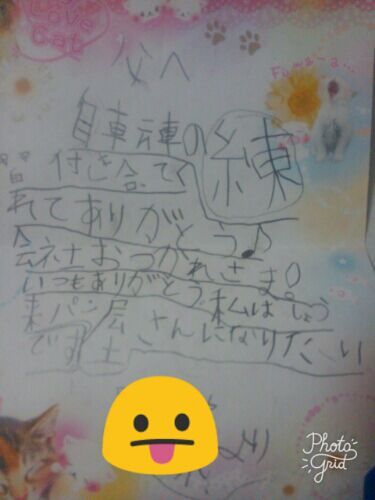 Love
Cat
父へ
Fuwa-a...
自転車の練
習 付き合てく
れてありがとう♪
会社おつかれさま。
いつもありがとう。私はしょう
来パン屋さんになりたい
です
Photo
Grid